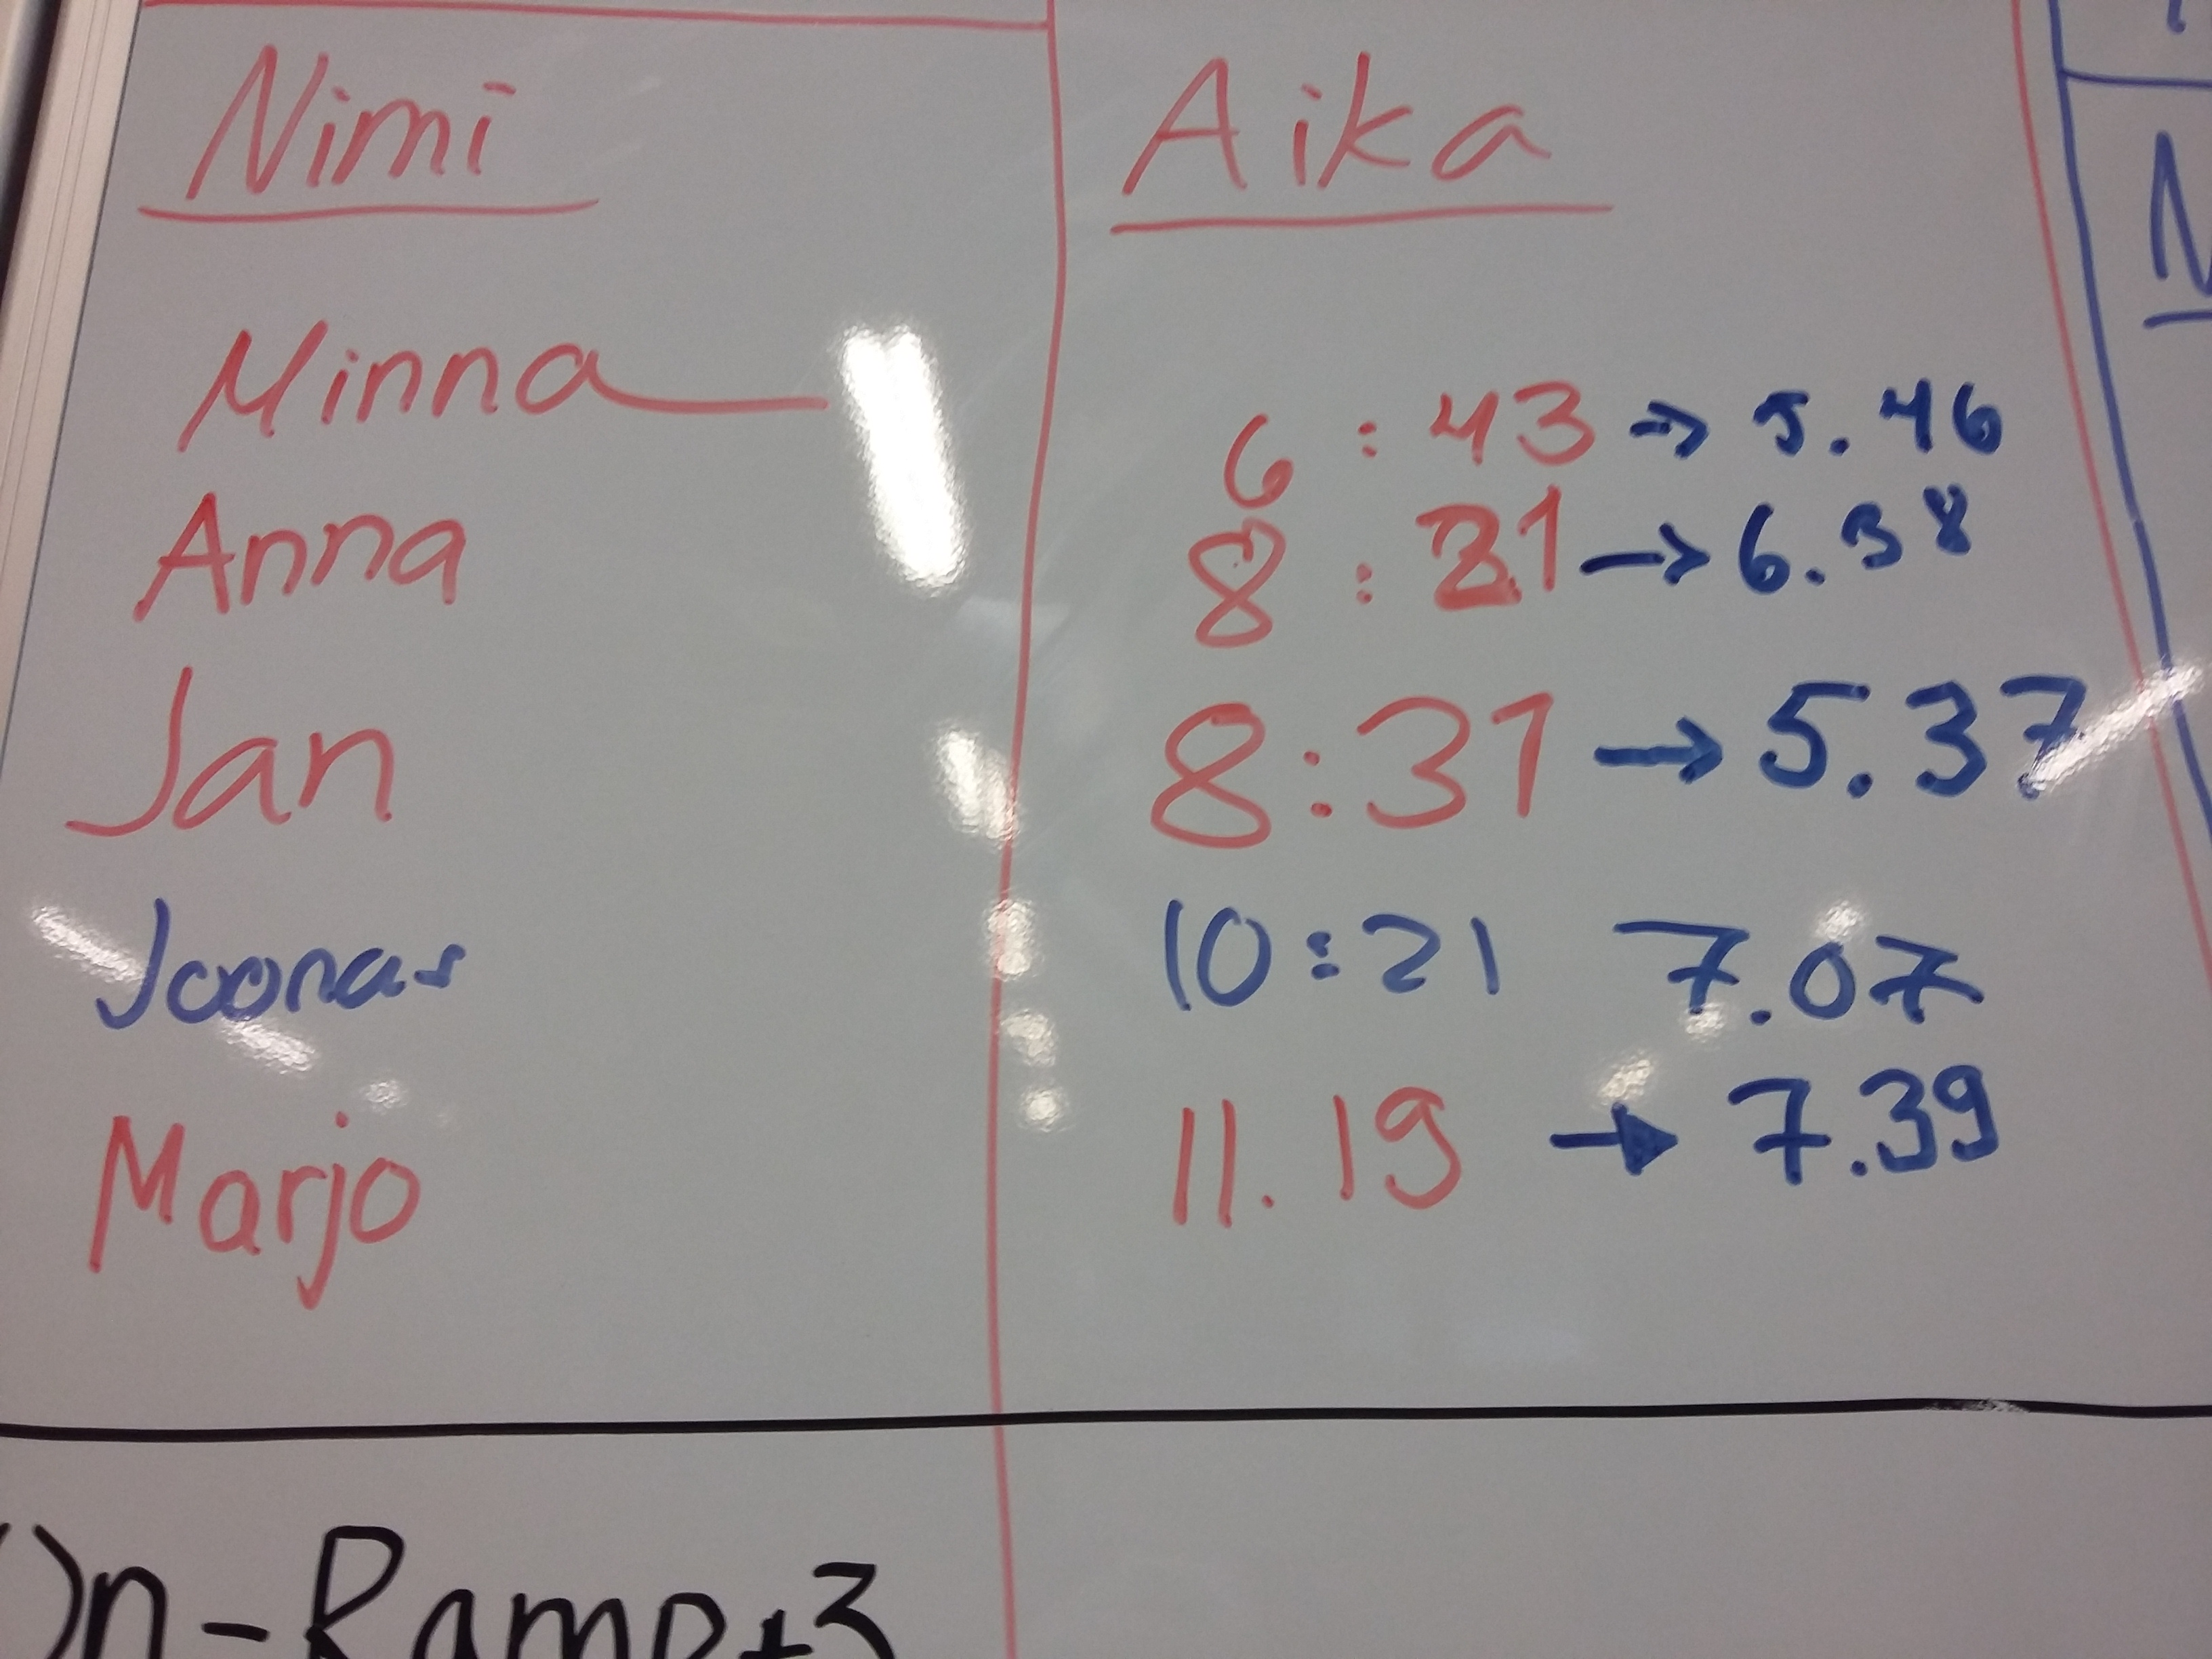 Nimi Aika
Minna 6:43 → 5.46
Anna 8:21 → 6.38
Jan 8:31 → 5.37
Joonas 10:21 7.07
Marjo 11.19 → 7.39
On-Ramp+3
N